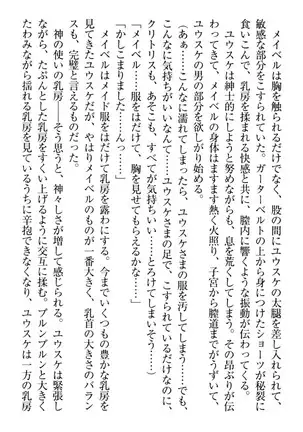 メイベルは胸を触られるだけでなく、股の間にユウスケの太腿が入り、
敏感な部分がこすられていた。ガーターベルトの上から身につけたショーツが秘裂に
食いこんで、乳房を揉まれる快感と共に、膣内に響くような振動が伝わってくる。
ユウスケは紳士的にしようと努めながらも、息を荒くしてしまう。その昂ぶりが伝
わってきて、メイベルの身体はますます熱く火照り、子宮から膣道までが
ユウスケの男の部分を欲しがり始める。
（あぁ……こんなに濡れてしまったら、ユウスケさまの服を汚してしまう……でも、
こんなに気持ちがいいなんて……っ、あっ……こすれているだけなのに、
クリトリスも、あそこも、すべてが気持ちいい……とろけてしまいそう……っ）
「メイベル……服をはだけて、胸を見せてもらえるかな」
「かしこまりました……んっ……」
　メイベルはメイド服をはだけて乳房を露わにする。今までいくつもの豊かな乳房を
見てきたユウスケだが、やはりメイベルのものが一番大きく、乳首の大きさのバラン
スも、完璧と言えるものだった。
　神の使いの乳房――そう思うと、神々しさが増して感じられる。ユウスケは緊張し
ながら、たぷんとした乳房をすくい上げるように交互に揉む。プルンプルンと大きく
たわみながら揺れる乳房を見ているうちに辛抱できなくなり、ユウスケは一方の乳房